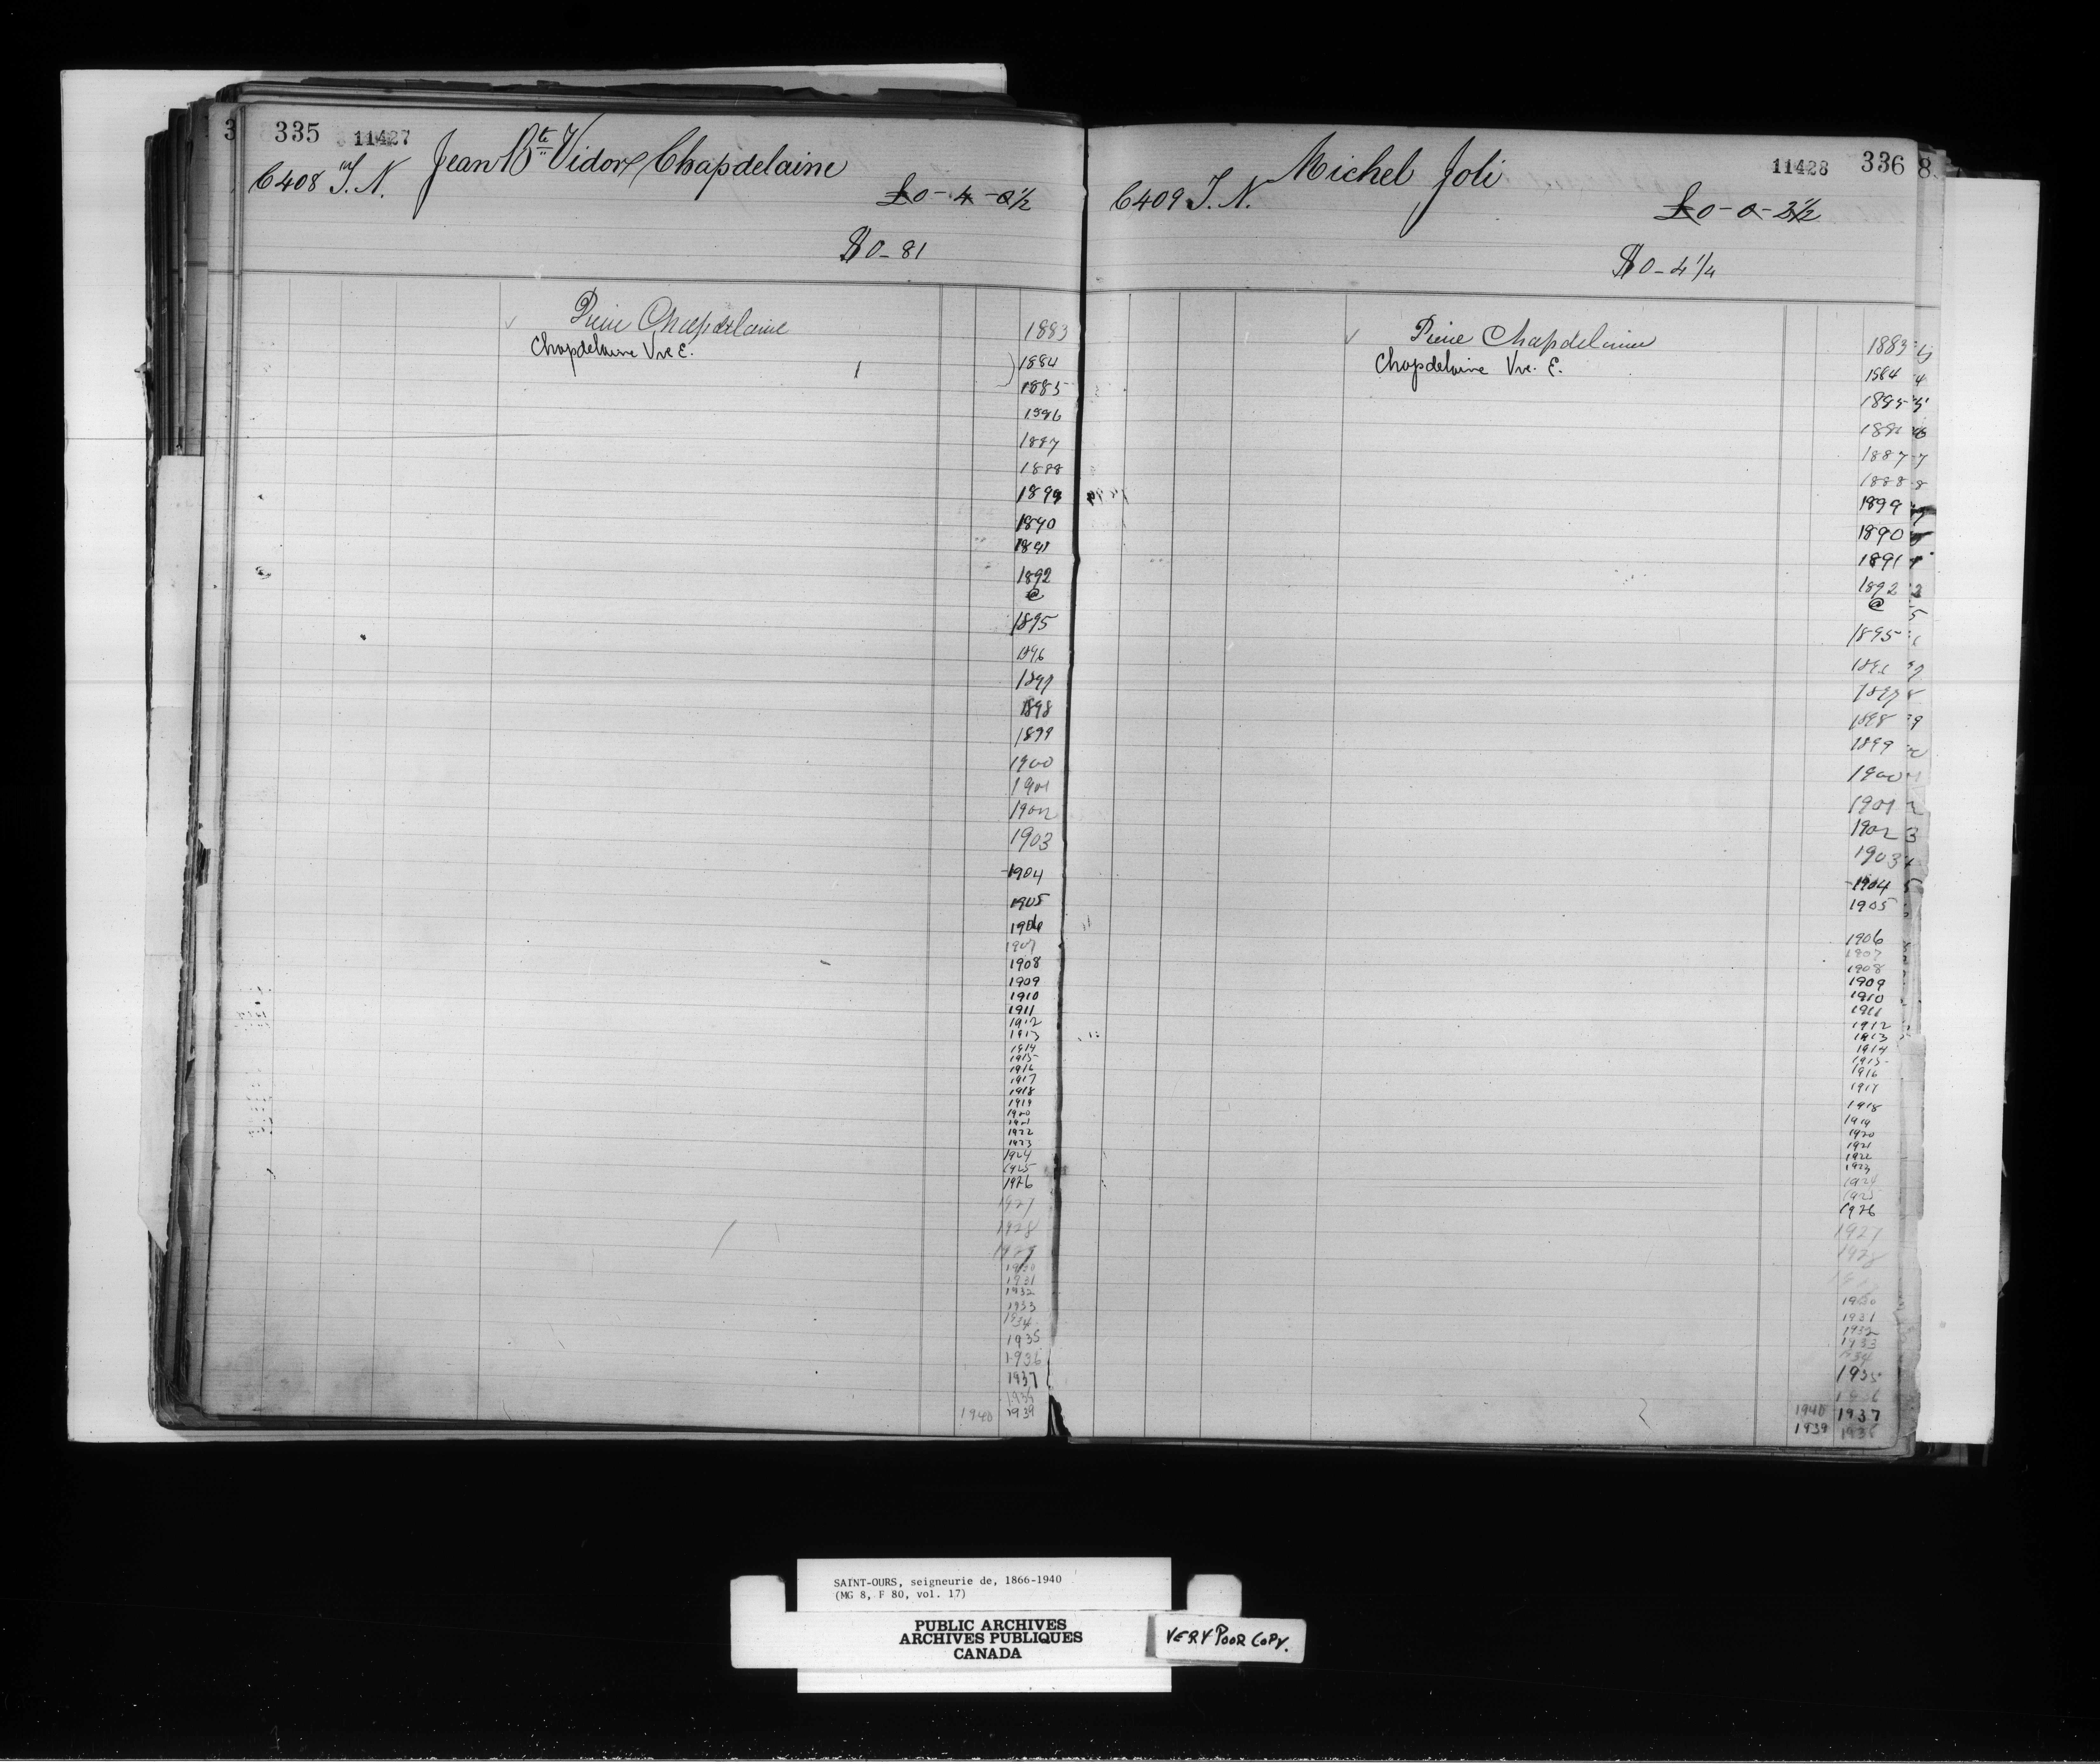 335 11427
C408 T. N. Jean Bte Vidor Chapdelaine
£0-4-0½
$0-81
Pierre Chapdelaine 1883
Chapdelaine Vve E. 1884
1885
1886
1887
1888
1899
1890
1891
1892
@
1895
1896
1897
1898
1899
1900
1901
1902
1903
1904
1905
1906
1907
1908
1909
1910
1911
1912
1913
1914
1915
1916
1917
1918
1919
1920
1921
1922
1923
1924
1925
1926
1927
1928
1929
1930
1931
1932
1933
1934
1935
1936
1937
1938
1940 1939
11428 336
C409 T. N. Michel Joli
£0-0-2½
$0-4¼
Pierre Chapdelaine 1883
Chapdelaine Vve. E. 1884
1885
1886
1887
1888
1899
1890
1891
1892
@
1895
1896
1897
1898
1899
1900
1901
1902
1903
1904
1905
1906
1907
1908
1909
1910
1911
1912
1913
1914
1915
1916
1917
1918
1919
1920
1921
1922
1923
1924
1925
1926
1927
1928
1930
1931
1932
1933
1934
1935
1936
1940 1937
1939 1938
SAINT-OURS, seigneurie de, 1866-1940
(MG 8, F 80, vol. 17)
PUBLIC ARCHIVES
ARCHIVES PUBLIQUES
CANADA
VERY POOR COPY.